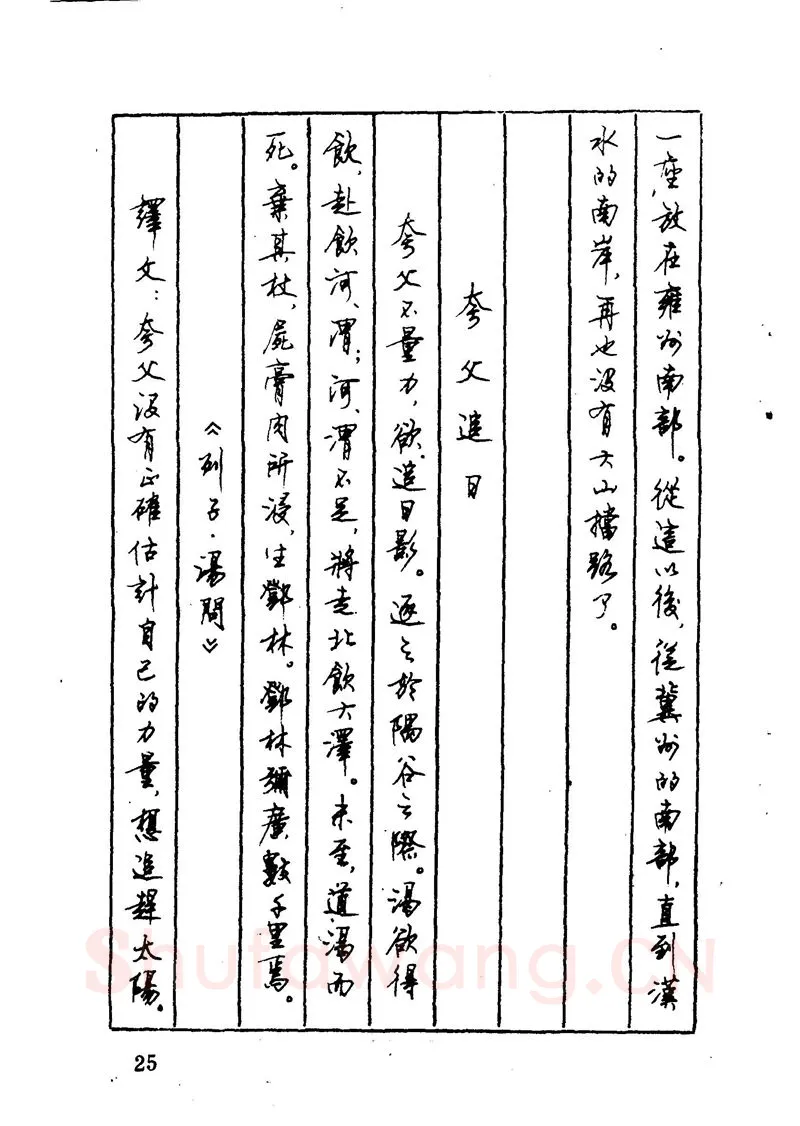 一座,放在雍州南部。從這以後,從冀州的南部,直到漢
水的南岸,再也沒有大山擋路了。
夸父追日
夸父不量力,欲追日影。逐之於隅谷之際。渴欲得
飲,赴飲河、渭;河、渭不足,將走北飲大澤。未至,道渴而
死。棄其杖,屍膏肉所浸,生鄧林。鄧林彌廣數千里焉。
《列子·湯問》
譯文:夸父沒有正確估計自己的力量,想追趕太陽。
25
Shufawang.CN